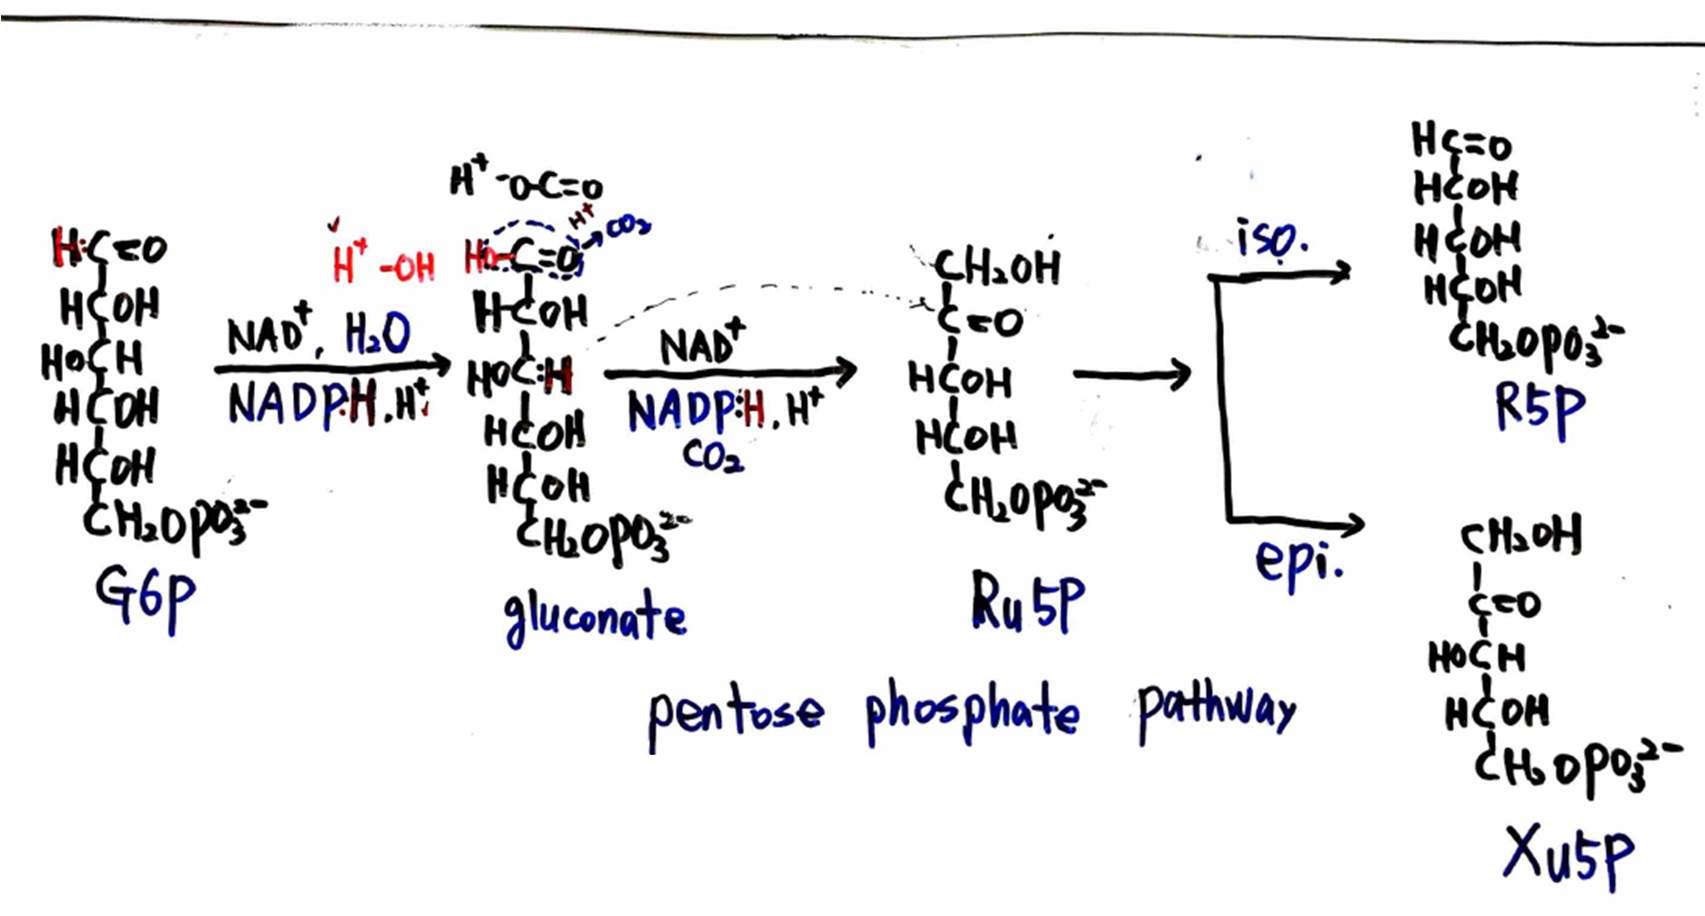 HC=O
HCOH
HOCH
HCOH
HCOH
CH₂OPO₃²⁻
G6P
H⁺ -OH
NAD⁺, H₂O
NADP:H, H⁺
H⁺ -O-C=O
H⁺
CO₂
HO-C=O
HCOH
HOC:H
HCOH
HCOH
CH₂OPO₃²⁻
gluconate
NAD⁺
NADP:H, H⁺
CO₂
CH₂OH
C=O
HCOH
HCOH
CH₂OPO₃²⁻
Ru5P
iso.
HC=O
HCOH
HCOH
HCOH
CH₂OPO₃²⁻
R5P
epi.
CH₂OH
C=O
HOCH
HCOH
CH₂OPO₃²⁻
Xu5P
pentose phosphate pathway